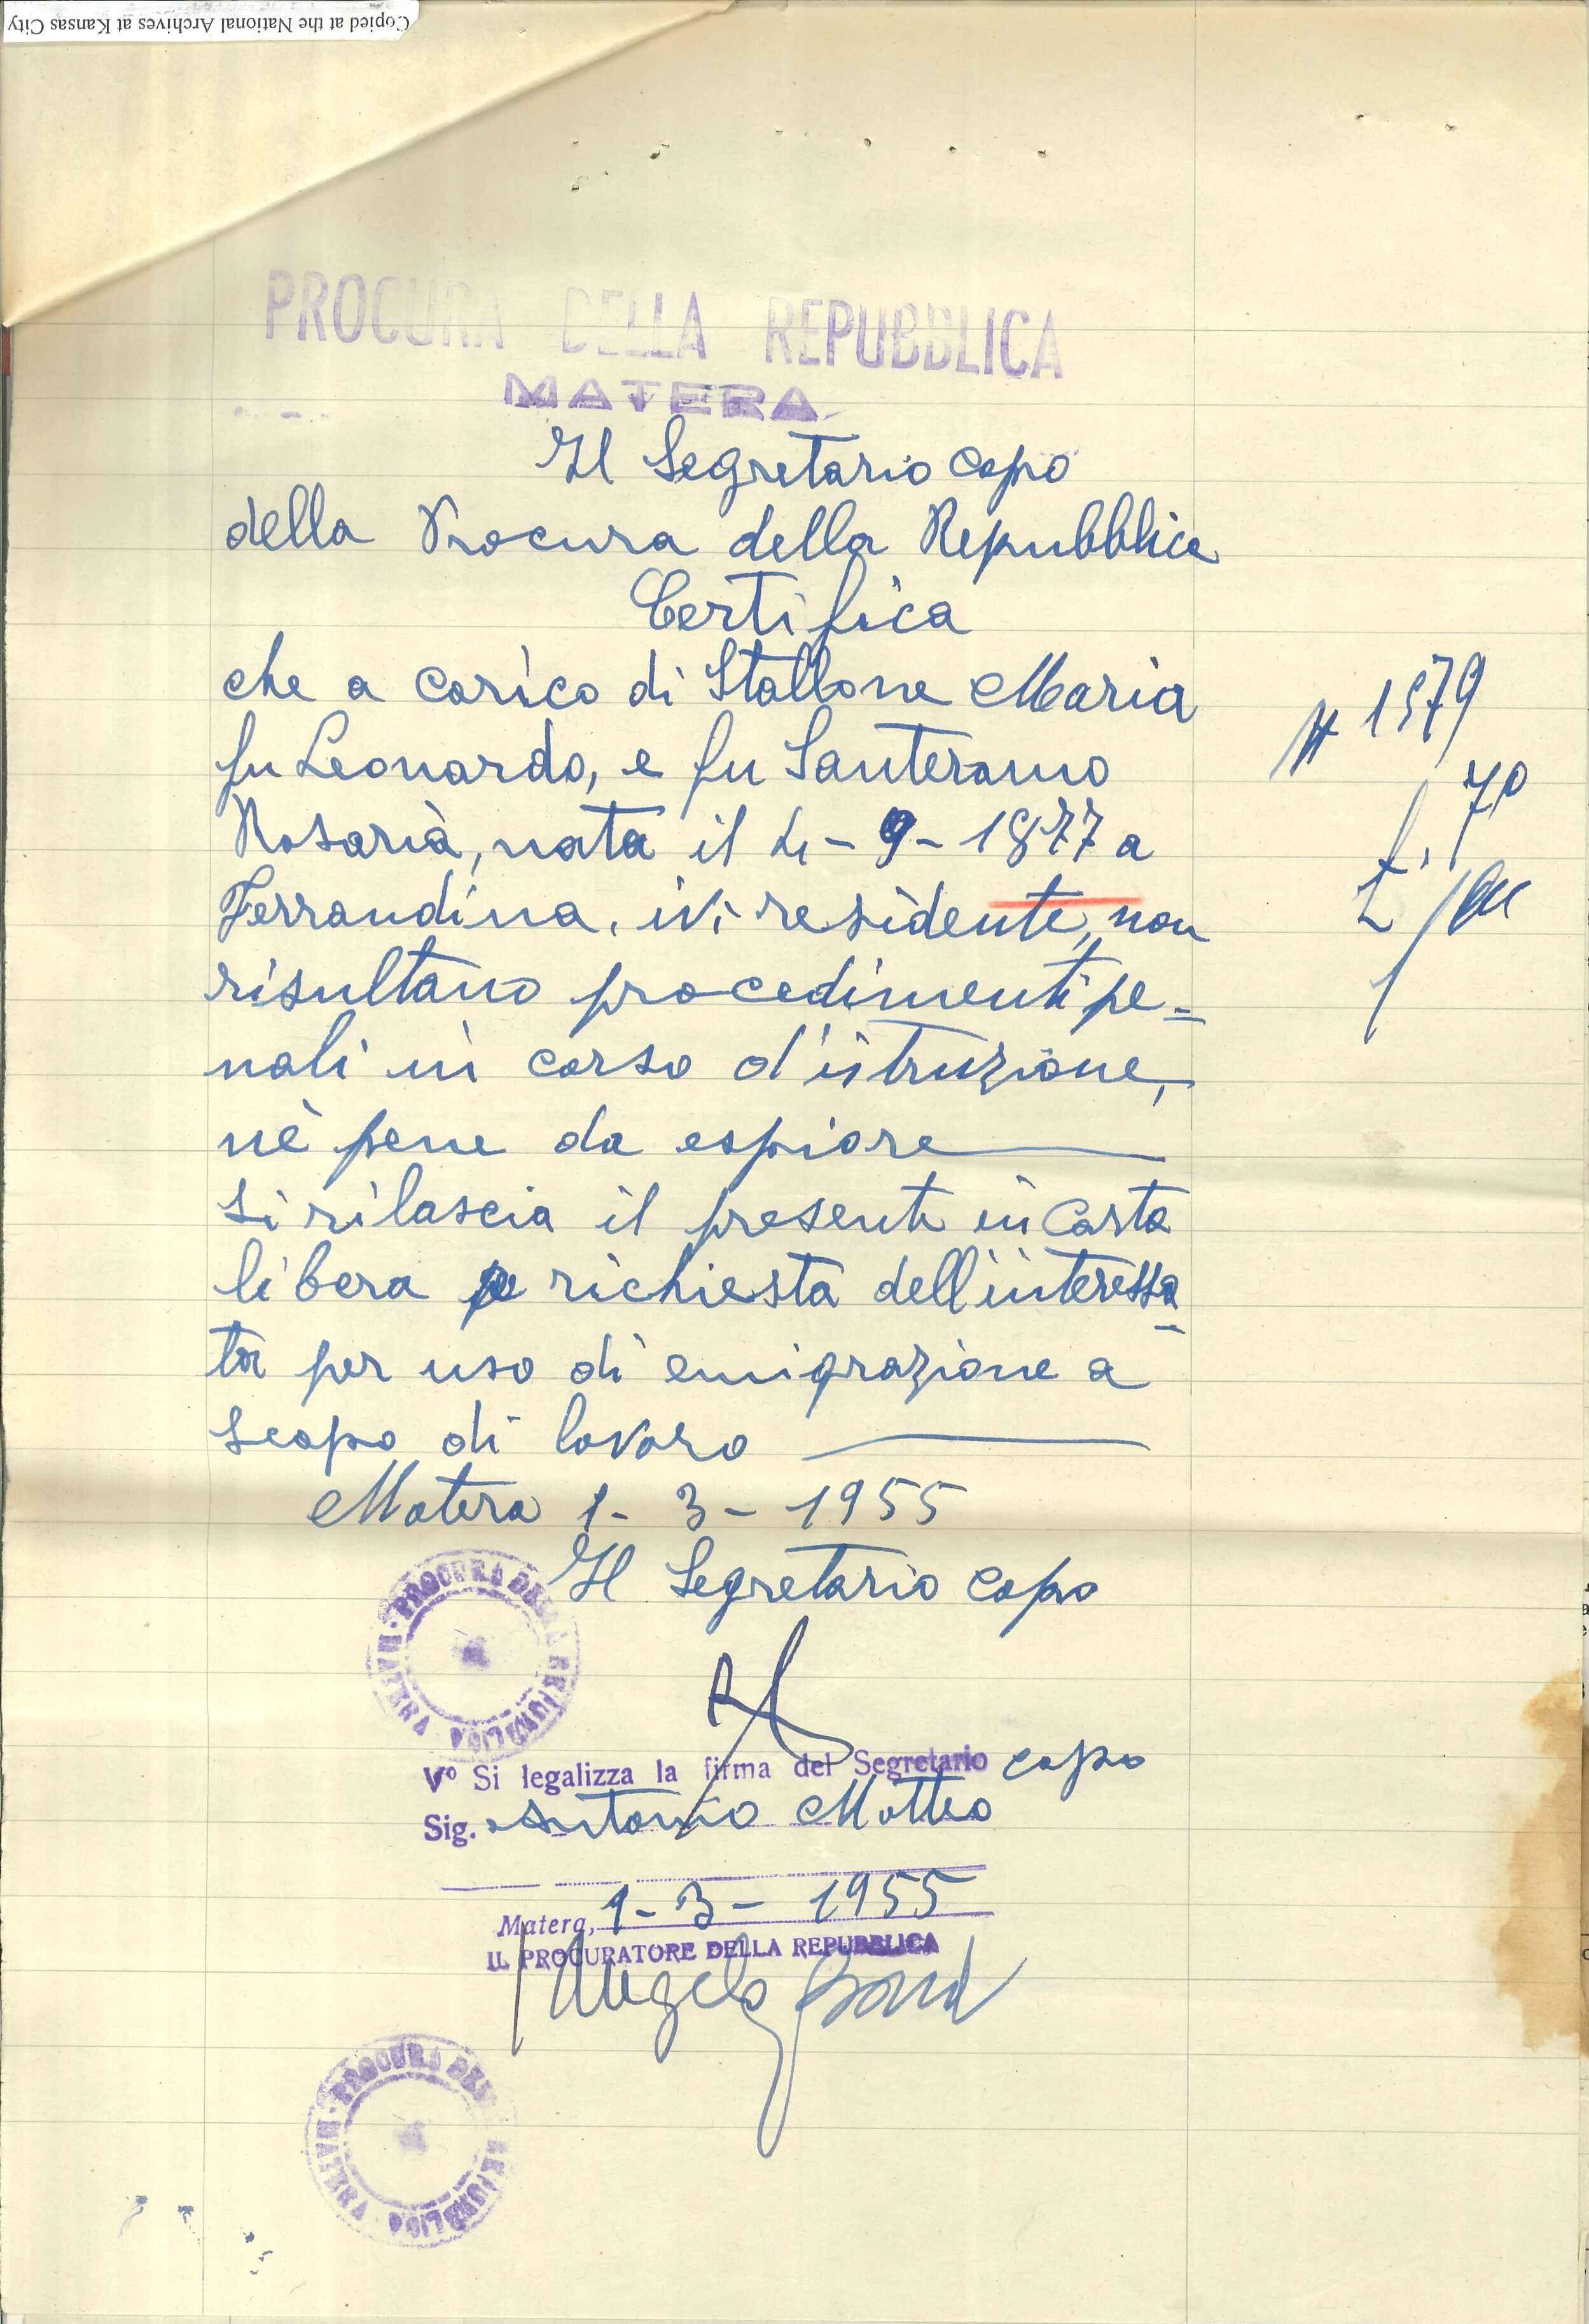 Copied at the National Archives at Kansas City
PROCURA DELLA REPUBBLICA
MATERA
Il Segretario capo
della Procura della Repubblica
Certifica
che a carico di Stallone Maria
fu Leonardo, e fu Santeramo
Rosaria, nata il 4-9-1877 a
Ferrandina, ivi residente, non
risultano procedimenti pe=
nali in corso d'istruzione,
nè pene da espiare
Si rilascia il presente in carta
libera a richiesta dell'interessa
ta per uso di emigrazione a
scopo di lavoro
Matera 1-3-1955
Il Segretario capo
PROCURA DELLA REPUBBLICA · MATERA
V° Si legalizza la firma del Segretario capo
Sig. Antonio Motteo
Matera, 1-3-1955
IL PROCURATORE DELLA REPUBBLICA
Angelo
PROCURA DELLA REPUBBLICA · MATERA
N 1579
70